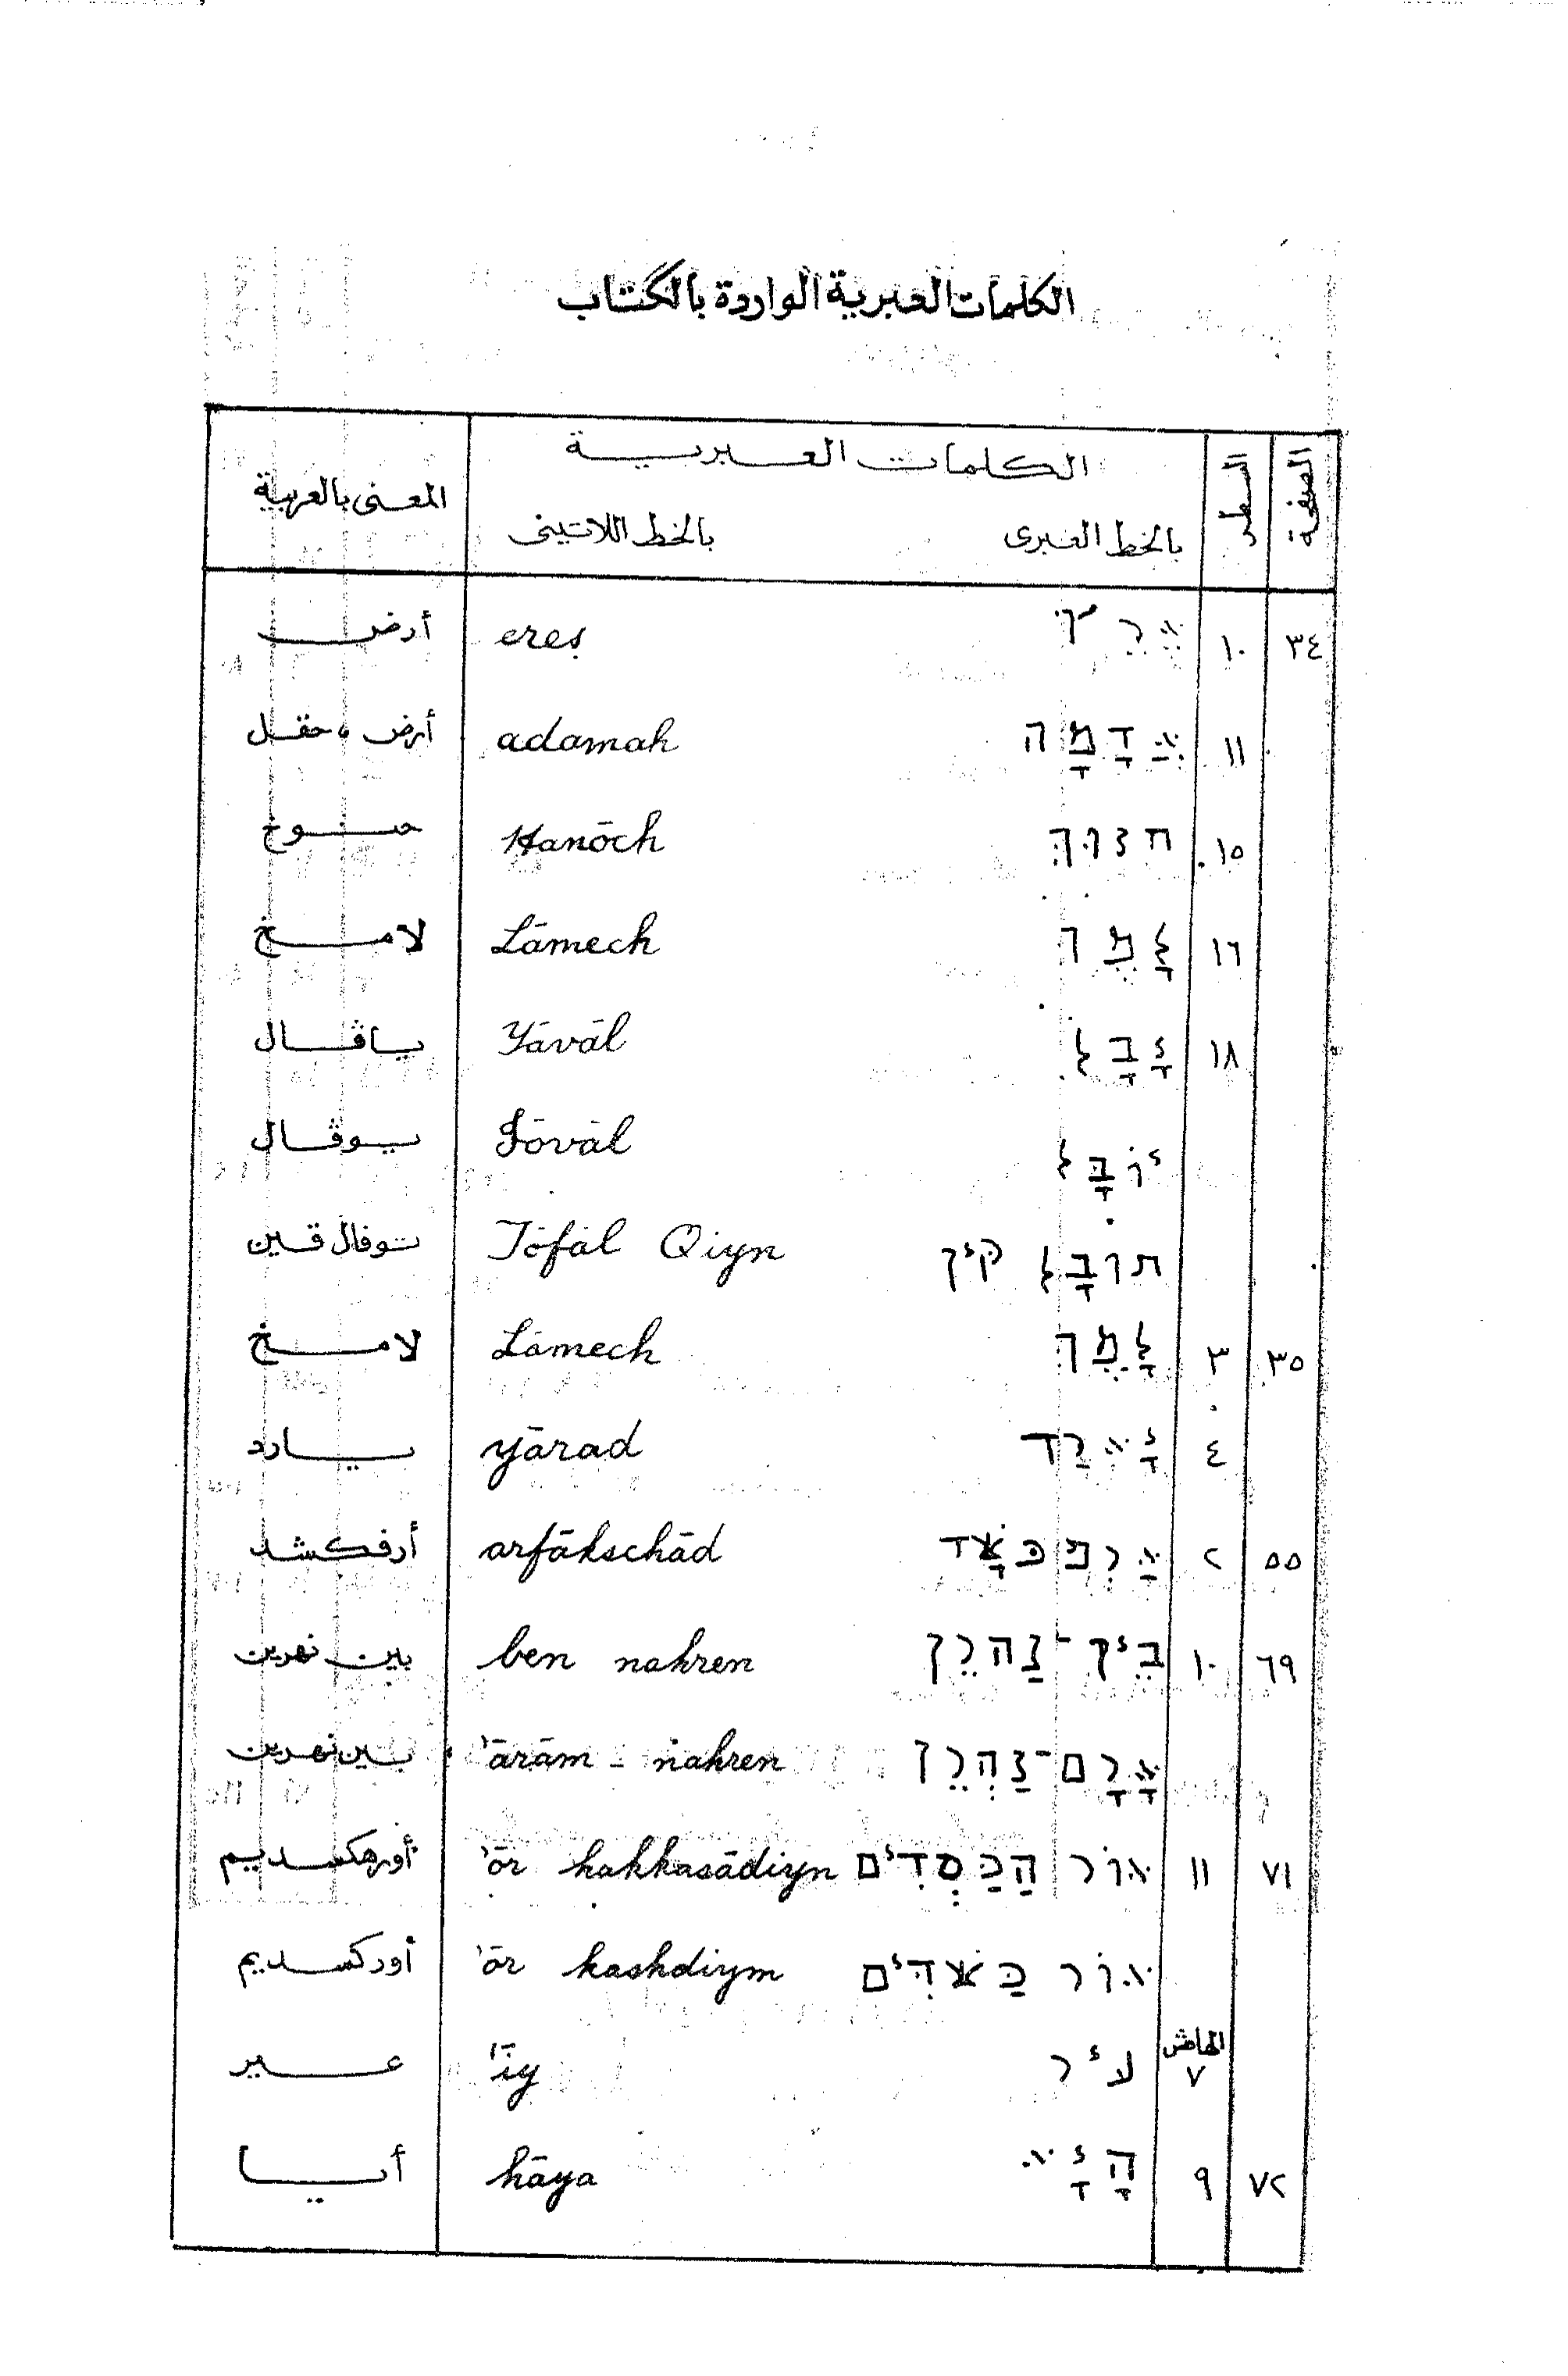 الكلمات العبرية الواردة بالكتاب
الصفحة السطر الكلمات العبرية المعنى بالعربية
بالخط العبرى بالخط اللاتينى
٣٤ ١٠ ארץ ereṣ أرض
١١ אֲדָמָה adamah أرض ، حقل
١٥ חנוך Hanōch حنوخ
١٦ לָמֶךְ Lāmech لامخ
١٨ יָבָל Yāvāl ياڤال
יוֹבָל Jōvāl يوڤال
תובָל קין Tōfāl Qiyn توفال قين
٣٥ ٣ לָמֶךְ Lāmech لامخ
٤ יָארַד yārad يارد
٥٥ ٢ arfākschād أرفكشد
٦٩ ١٠ בֵּין־נַהרֵן ben nahren بين نهرين
אָרָם־נַהְרֵן 'ārām - nahren بين نهرين
٧١ ١١ אוֹר הַכַּסְדִים 'ōr hakkasādiyn أورهكسديم
אוֹר כַּשׁדִים 'ōr kashdiym أوركسديم
الهامش
٧ עיר 'īy عير
٧٢ ٩ הָיָא hāya أيا